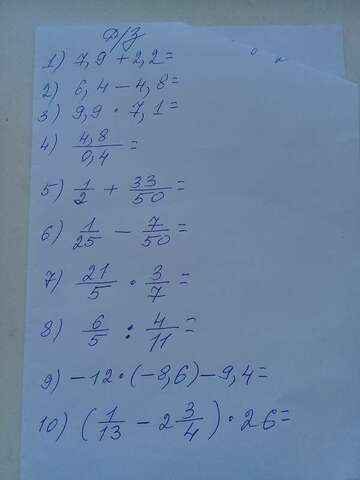 Д/з
1) 7,9 + 2,2 =
2) 6,4 − 4,8 =
3) 9,9 · 7,1 =
4) 4,8/0,4 =
5) 1/2 + 33/50 =
6) 1/25 − 7/50 =
7) 21/5 · 3/7 =
8) 6/5 : 4/11 =
9) −12 · (−8,6) − 9,4 =
10) (1/13 − 2 3/4) · 26 =